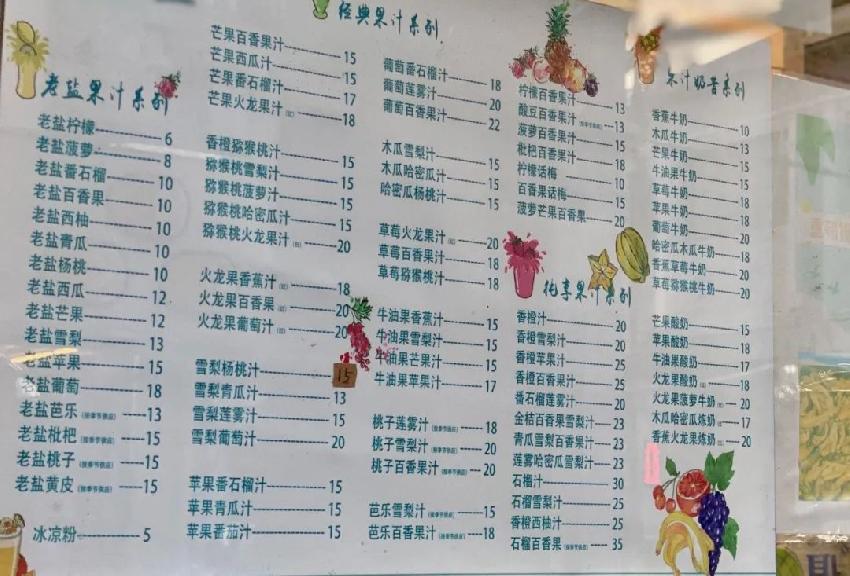 老盐果汁系列
老盐柠檬 6
老盐菠萝 8
老盐番石榴 10
老盐百香果 10
老盐西柚 10
老盐青瓜 10
老盐杨桃 10
老盐西瓜 12
老盐芒果 12
老盐雪梨 13
老盐苹果 15
老盐葡萄 18
老盐芭乐 13
老盐枇杷 15
老盐桃子 15
老盐黄皮 15
冰凉粉 5
经典果汁系列
芒果百香果汁 15
芒果西瓜汁 15
芒果番石榴汁 17
芒果火龙果汁 18
香橙猕猴桃汁 15
猕猴桃雪梨汁 15
猕猴桃菠萝汁 15
猕猴桃哈密瓜汁 15
猕猴桃火龙果汁 20
火龙果香蕉汁 18
火龙果百香果 20
火龙果葡萄汁 20
雪梨杨桃汁 15
雪梨青瓜汁 13
雪梨莲雾汁 15
雪梨葡萄汁 20
苹果番石榴汁 15
苹果青瓜汁 15
苹果番茄汁 15
葡萄番石榴汁 18
葡萄莲雾汁 20
葡萄百香果汁 22
木瓜雪梨汁 15
木瓜哈密瓜汁 15
哈密瓜杨桃汁 15
草莓火龙果汁 20
草莓百香果汁 18
草莓猕猴桃汁 18
牛油果香蕉汁 15
牛油果雪梨汁 15
牛油果芒果汁 15
牛油果苹果汁 17
桃子莲雾汁 18
桃子雪梨汁 20
桃子百香果汁 20
芭乐雪梨汁 15
芭乐百香果汁 18
柠檬百香果汁 13
酸豆百香果汁 13
菠萝百香果汁 15
枇杷百香果汁 18
柠檬话梅 10
百香果话梅 15
菠萝芒果百香果 20
纯享果汁系列
香橙汁 20
香橙雪梨汁 20
香橙苹果汁 25
香橙百香果汁 25
番石榴莲雾汁 20
金桔百香果雪梨汁 23
青瓜雪梨百香果汁 23
莲雾哈密瓜雪梨汁 23
石榴汁 30
石榴雪梨汁 25
香橙西柚汁 25
石榴百香果 35
果汁奶昔系列
香蕉牛奶 10
木瓜牛奶 13
芒果牛奶 15
牛油果牛奶 15
草莓牛奶 18
苹果牛奶 18
葡萄牛奶 20
哈密瓜木瓜牛奶 18
香蕉草莓牛奶 20
草莓猕猴桃牛奶 20
芒果酸奶 15
苹果酸奶 18
牛油果酸奶 17
火龙果酸奶 18
火龙果菠萝牛奶 20
木瓜哈密瓜炼奶 17
香蕉火龙果炼奶 20